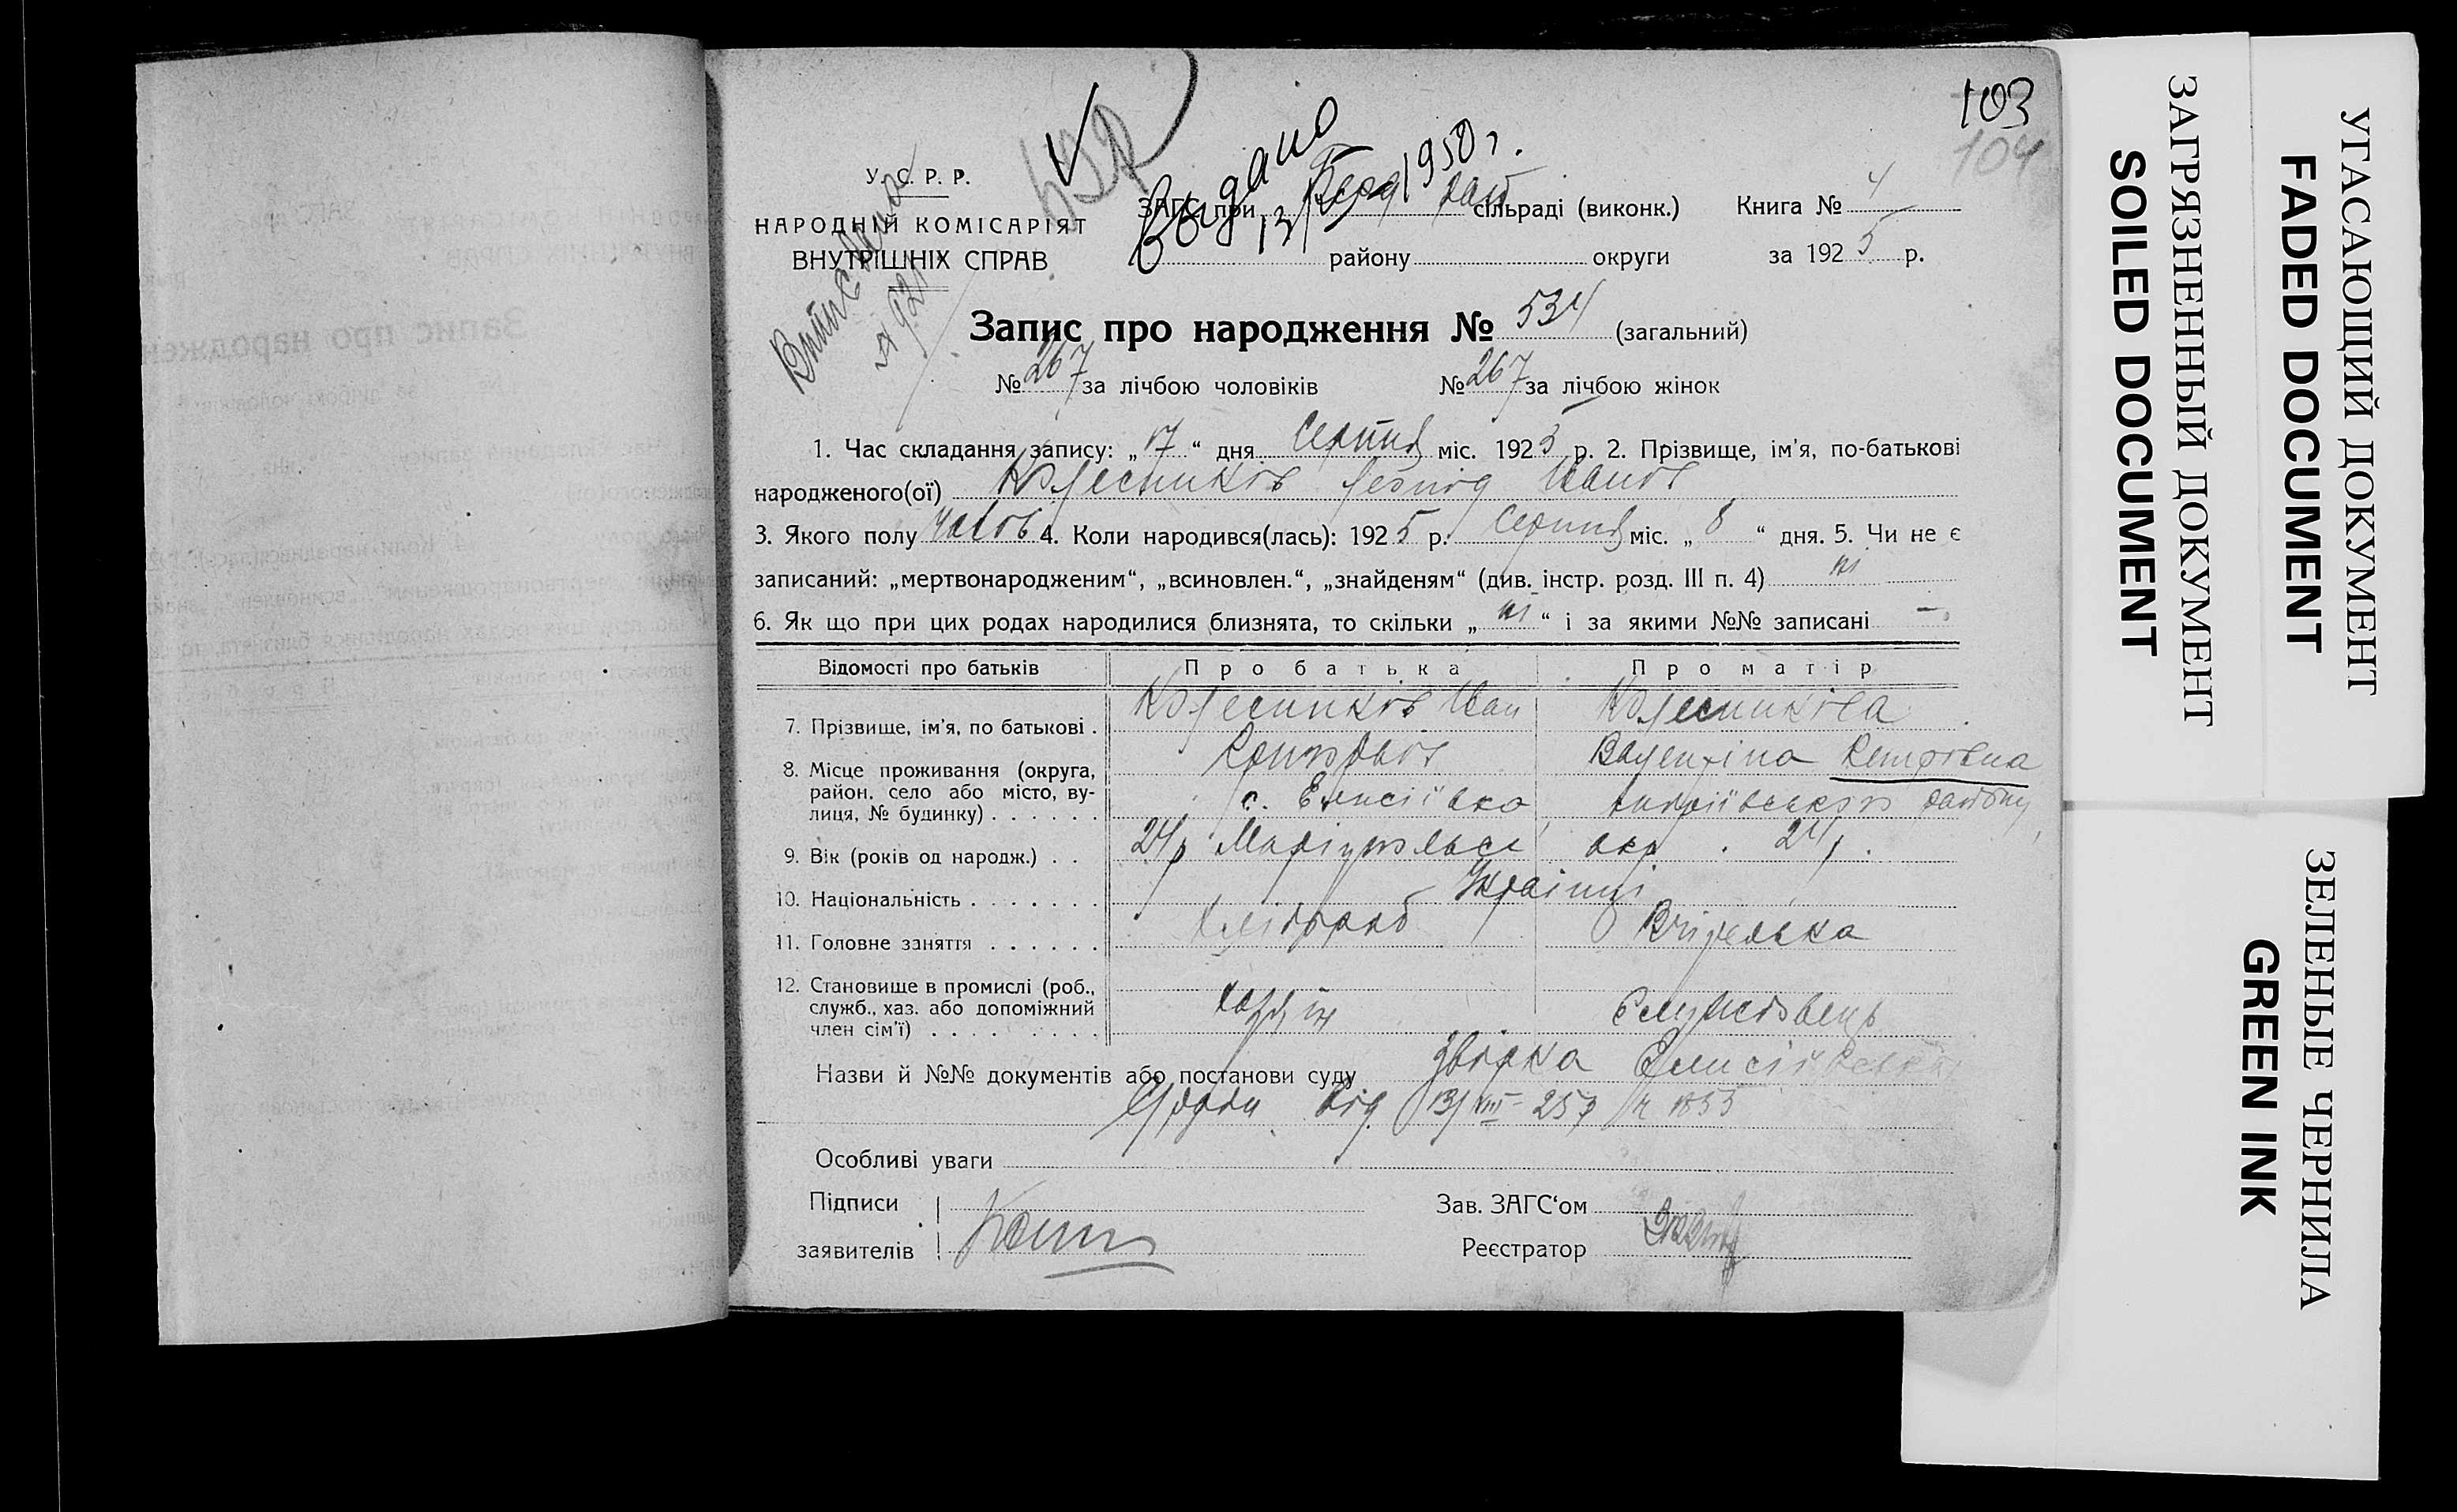 103
104
У. С. Р. Р.
НАРОДНІЙ КОМІСАРІЯТ
ВНУТРІШНІХ СПРАВ
Выдано
1950 г.
ЗАГС при сільраді (виконк.)
району округи
Книга № 4
за 1925 р.
Запис про народження № 534 (загальний)
№ 267 за лічбою чоловіків № 267 за лічбою жінок
1. Час складання запису: „17“ дня Серпня міс. 1925 р. 2. Прізвище, ім'я, по-батькові
народженого(ої) Колесників Леонід Іванов
3. Якого полу чолов 4. Коли народився(лась): 1925 р. Серпня міс. „8“ дня. 5. Чи не є
записаний: „мертвонародженим“, „всиновлен.“, „знайденям“ (див. інстр. розд. III п. 4) ні
6. Як що при цих родах народилися близнята, то скільки „ні“ і за якими №№ записані —
Відомості про батьків Про батька Про матір
7. Прізвище, ім'я, по батькові . Колесників Іван Колесниківа
Валентіна
8. Місце проживання (округа, район, село або місто, вулиця, № будинку) . . . . . . с. Елисіївка Андріївського району
9. Вік (років од народж.) . . 24р Маріупольск окр. 24р.
10. Національність . . . . . . . Українці
11. Головне заняття . . . . . . Хлібороб Вчителька
12. Становище в промислі (роб., служб., хаз. або допоміжний член сім'ї) . . . . . . . . . хазяїн
Назви й №№ документів або постанови суду
від 13/VIII-25р № 1855
Особливі уваги
Підписи
заявителів
Зав. ЗАГС'ом
Реєстратор
ЗАГРЯЗНЕННЫЙ ДОКУМЕНТ
SOILED DOCUMENT
УГАСАЮЩИЙ ДОКУМЕНТ
FADED DOCUMENT
ЗЕЛЕНЫЕ ЧЕРНИЛА
GREEN INK